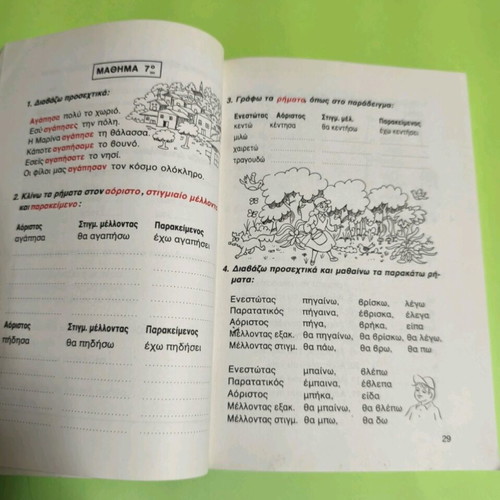 ΜΑΘΗΜΑ 7ο
1. Διαβάζω προσεχτικά:
Αγάπησα πολύ το χωριό.
Εσύ αγάπησες την πόλη.
Η Μαρίνα αγάπησε τη θάλασσα.
Κάποτε αγαπήσαμε το βουνό.
Εσείς αγαπήσατε το νησί.
Οι φίλοι μας αγάπησαν τον κόσμο ολόκληρο.
2. Κλίνω τα ρήματα στον αόριστο, στιγμιαίο μέλλοντα
και παρακείμενο:
Αόριστος Στιγμ. μέλλοντας Παρακείμενος
αγάπησα θα αγαπήσω έχω αγαπήσει
Αόριστος Στιγμ. μέλλοντας Παρακείμενος
πήδησα θα πηδήσω έχω πηδήσει
3. Γράφω τα ρήματα, όπως στο παράδειγμα:
Ενεστώτας Αόριστος Στιγμ. μέλ. Παρακείμενος
κεντώ κέντησα θα κεντήσω έχω κεντήσει
μιλώ
χαιρετώ
τραγουδώ
4. Διαβάζω προσεχτικά και μαθαίνω τα παρακάτω ρή-
ματα:
Ενεστώτας πηγαίνω, βρίσκω, λέγω
Παρατατικός πήγαινα, έβρισκα, έλεγα
Αόριστος πήγα, βρήκα, είπα
Μέλλοντας εξακ. θα πηγαίνω, θα βρίσκω, θα λέγω,
Μέλλοντας στιγμ. θα πάω, θα βρω, θα πω
Ενεστώτας μπαίνω, βλέπω
Παρατατικός έμπαινα, έβλεπα
Αόριστος μπήκα, είδα
Μέλλοντας εξακ. θα μπαίνω, θα βλέπω
Μέλλοντας στιγμ. θα μπω, θα δω
29